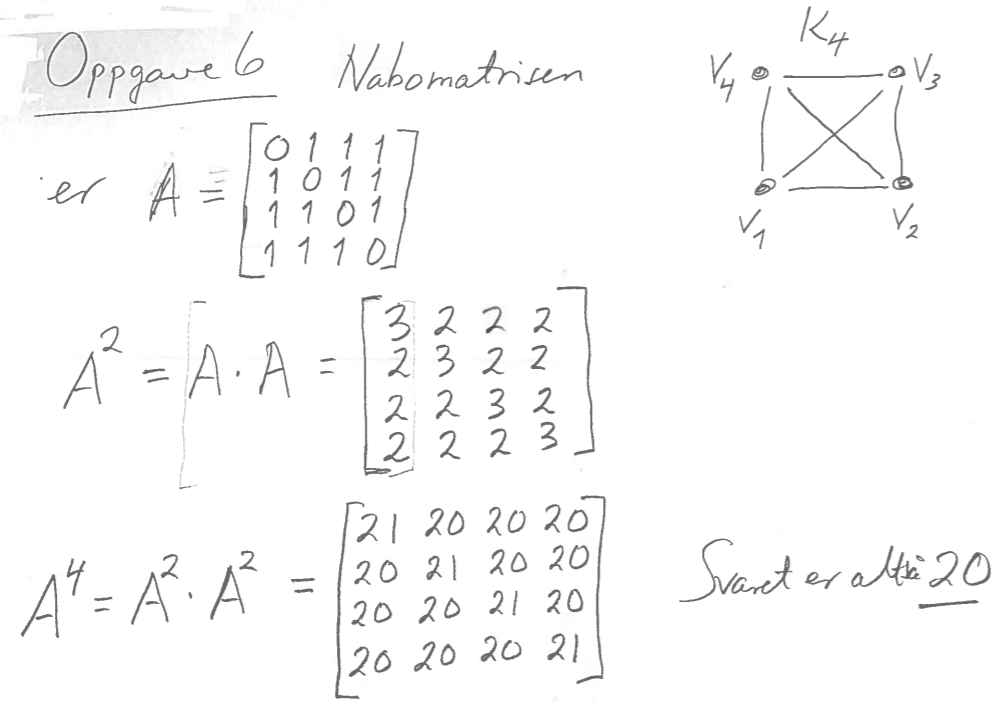 Oppgave 6 Nabomatrisen
K4
V4 V3
V1 V2
er A = [0 1 1 1
1 0 1 1
1 1 0 1
1 1 1 0]
A² = A · A = [3 2 2 2
2 3 2 2
2 2 3 2
2 2 2 3]
A⁴ = A² · A² = [21 20 20 20
20 21 20 20
20 20 21 20
20 20 20 21]
Svaret er altså 20